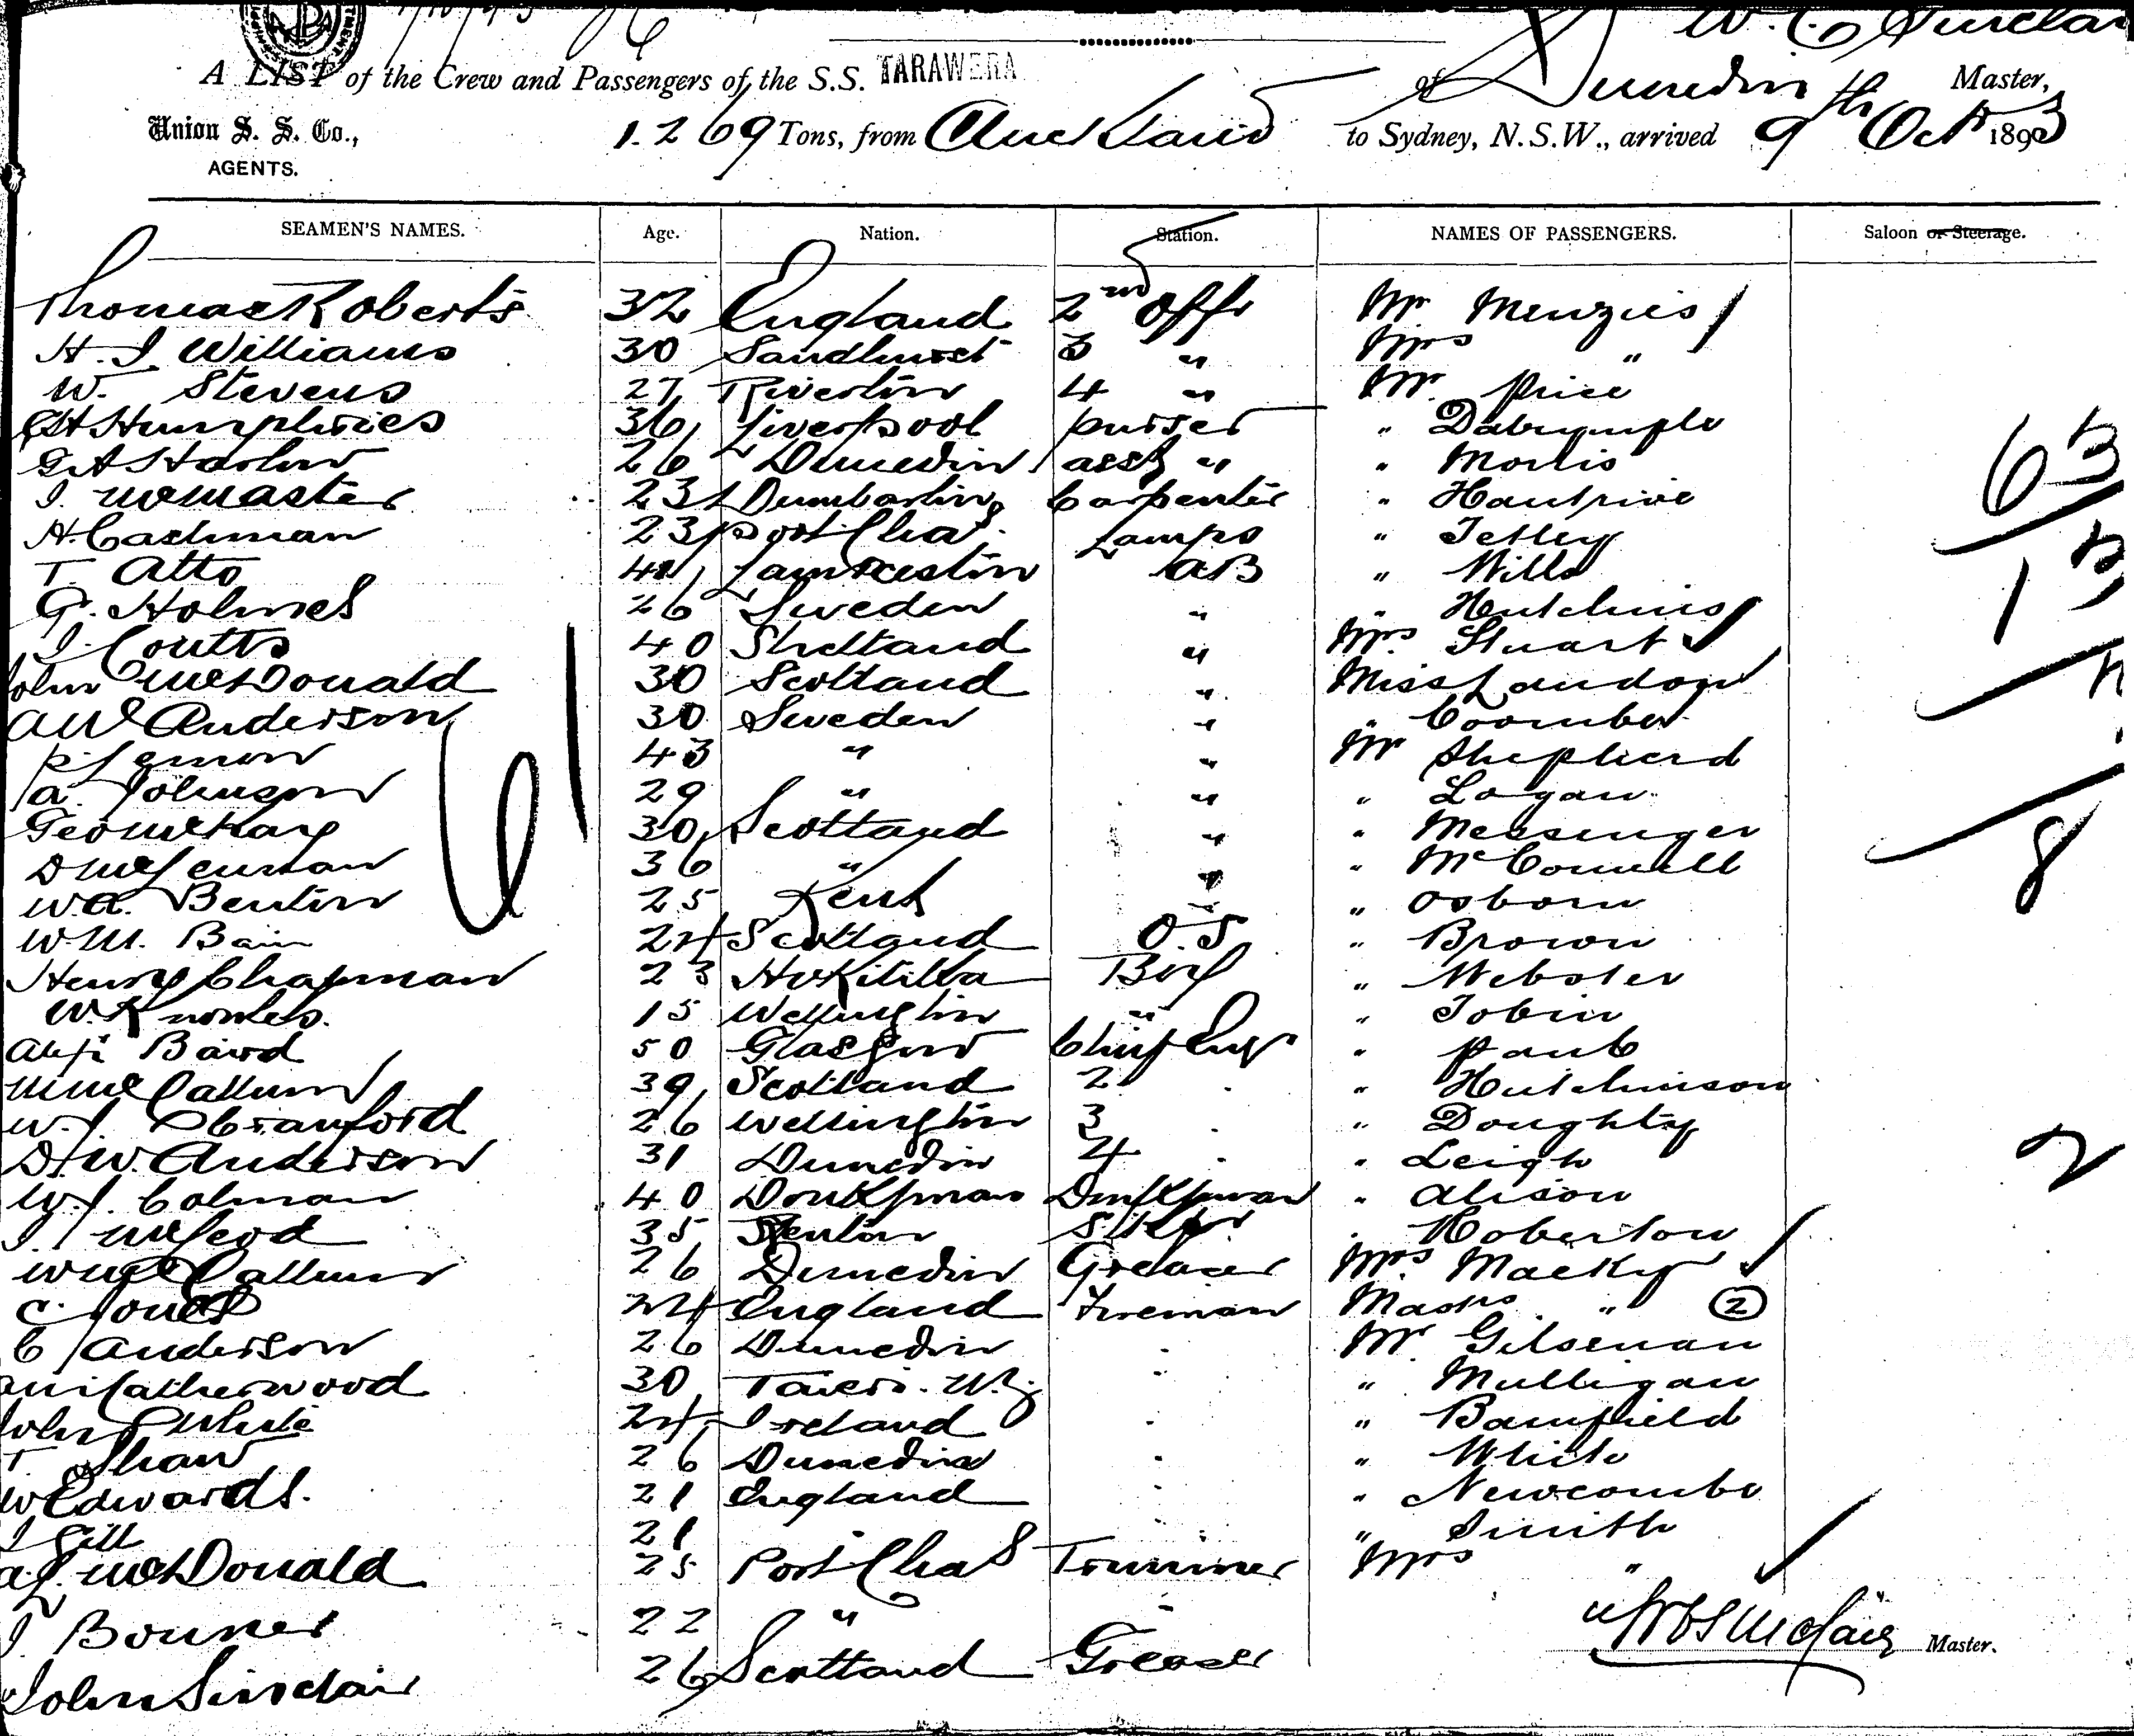 W. C. Sinclair
A LIST of the Crew and Passengers of the S.S. TARAWERA of Dunedin Master,
Union S. S. Co., 1.269 Tons, from Auckland to Sydney, N.S.W., arrived 9th Oct 1893
AGENTS.
SEAMEN'S NAMES. Age. Nation. Station. NAMES OF PASSENGERS. Saloon or Steerage.
Thomas Roberts 32 England 2nd Offr Mr Menzies
H. J. Williams 30 Sandhurst 3 " Mrs "
W. Stevens 27 Riverton 4 " Mr. Price
Humphries 36 Liverpool purser " Dalrymple
26 Dunedin asst " " Morris
J. McMaster 23 Dumbarton Carpenter "
H. Cashman 23 Port Chas Lamps " Tetley
T. Atto Launceston AB " Wills
G. Holmes 26 Sweden " " Hutchins
J. Coutts 40 Shetland " Mrs Stuart
John McDonald 30 Scotland " Miss Landon
AW Anderson 30 Sweden " " Coomber
43 " " Mr Shepherd
A. Johnson 29 " " " Logan
Geo McKay 30 Scotland " " Messenger
D McLennan 36 " " " McConnell
W.A. Benton 25 Kent " " Osborn
W.M. Bain 24 Scotland O.S " Brown
Henry Chapman 23 Hokitika Boy " Webster
W. Knowles. 15 Wellington " " Tobin
Alexr Baird 50 Glasgow Chief Engr "
McCallum 39 Scotland 2 " Hutchinson
W. J. Cranford 26 Wellington 3 " Doughty
D.W. Anderson 31 Dunedin 4 " Leigh
W.J. Colman 40 Donkyman Donkyman " Alison
J. McLeod 35 " Roberton
W McCallum 26 Dunedin Greaser Mrs. Macky
C. Jones 24 England Fireman Mastrs " 2
C Anderson 26 Dunedin " Mr Gilsenan
Catherwood 30 " Mulligan
John White 24 Ireland " " Bamfield
T Shaw 26 Dunedin " " White
W Edwards. 21 England " " Newcombe
J Gill 21 " " " Smith
A.L. McDonald 25 Port Chas Trimmer Mrs "
J Bonner 22 " "
John Sinclair 26 Scotland Greaser
W C Sinclair Master.
63
1
8
2